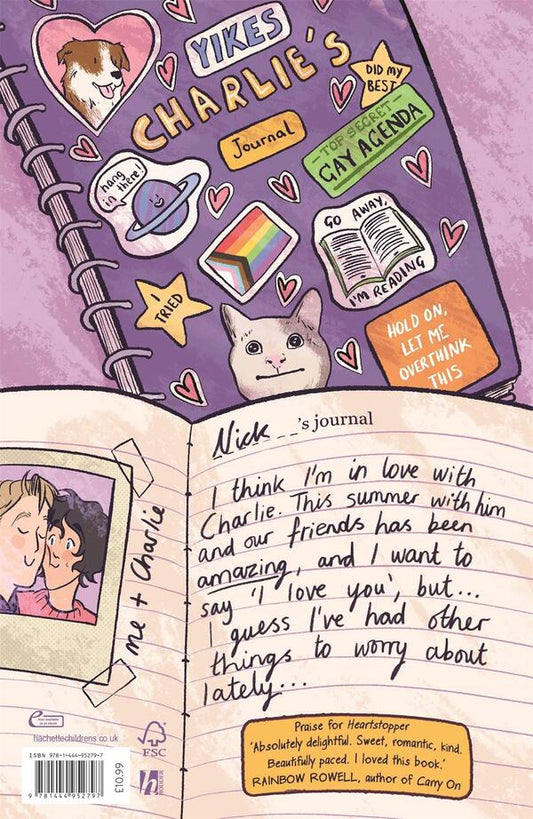 YIKES
CHARLIE'S
Journal
DID MY
BEST
- TOP SECRET -
GAY AGENDA
hang
in there!
GO AWAY,
I'M READING
I
TRIED
HOLD ON,
LET ME
OVERTHINK
THIS
Nick_ _'s journal
I think I'm in love with
Charlie. This summer with him
and our friends has been
amazing, and I want to
say 'I love you', but...
I guess I've had other
things to worry about
lately...
me + Charlie
Praise for Heartstopper
'Absolutely delightful. Sweet, romantic, kind.
Beautifully paced. I loved this book.'
RAINBOW ROWELL, author of Carry On
Also available
as an ebook
hachettechildrens.co.uk
FSC
HODDER
ISBN 978-1-444-95279-7
9 781444 952797
£10.99